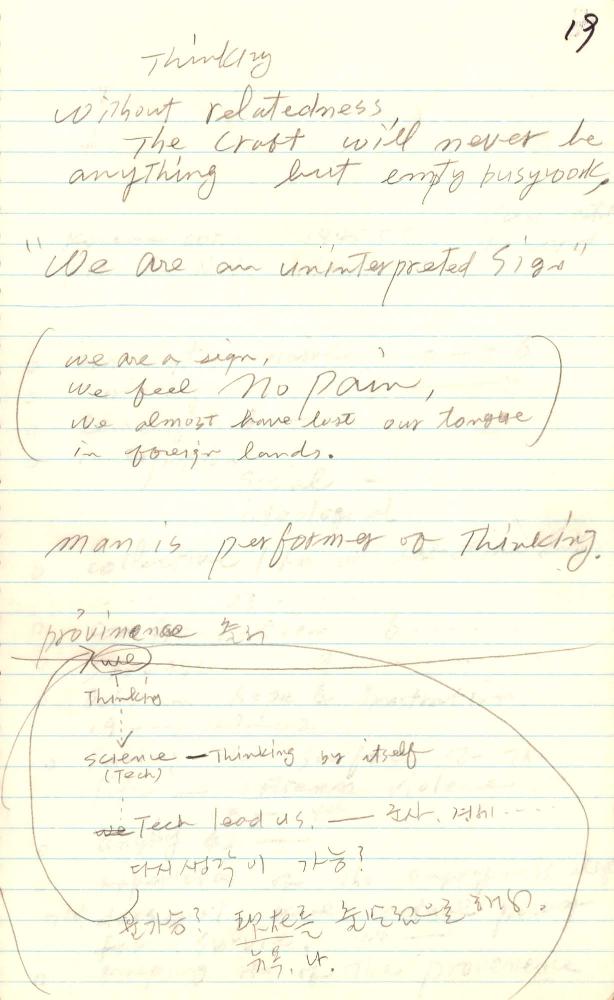 19
Thinking
without relatedness,
The Craft will never be
anything but empty busywork,
"We are an uninterpreted sign"
(we are a sign,
we feel no pain,
we almost have lost our tongue
in foreign lands.)
man is performer of Thinking.
provinence 출처
we
Thinking
science - Thinking by itself
(Tech)
we Tech lead us. — 군사. 경제.....
다시 생각이 가능?
불가능?
뉴욕. 나.